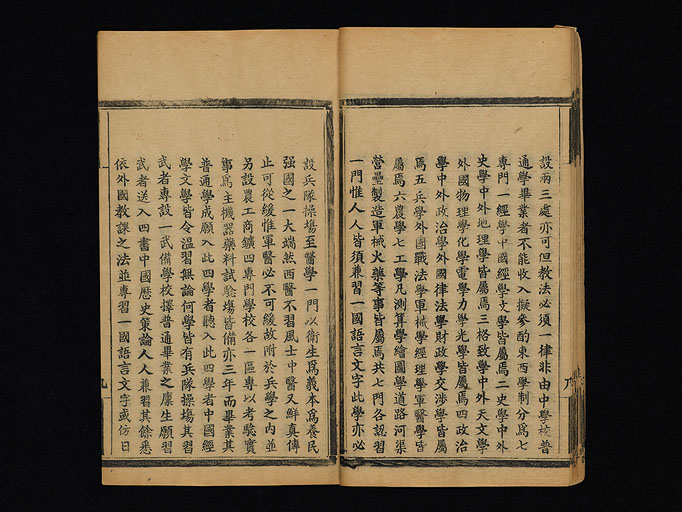 設兩三處亦可但教法必須一律非由中學校普
通學畢業者不能收入擬參酌東西學制分爲七
專門一經學中國經學文學皆屬焉二史學中外
史學中外地理學皆屬焉三格致學中外天文學
外國物理學化學電學力學光學皆屬焉四政治
學中外政治學外國律法學財政學交涉學皆屬
焉五兵學外國戰法學軍械學經理學軍醫學皆
屬焉六農學七工學凡測算學繪圖學道路河渠
營壘製造軍械火藥等事皆屬焉共七門各認習
一門惟人人皆須兼習一國語言文字此學亦必
設兵隊操場至醫學一門以衛生爲義本爲養民
强國之一大端然西醫不習風土中醫又鮮真傳
止可從緩惟軍醫必不可緩故附於兵學之內並
另設農工商鑛四專門學校各一區專以考驗實
事爲主機器藥料試驗場皆備亦三年而畢業其
普通學成願入此四學者聽入此四學者中國經
學文學皆令溫習無論何學皆有兵隊操場其習
武者專設一武備學校擇普通畢業之廩生願習
武者送入四書中國歷史策論人人兼習其餘悉
依外國教課之法並專習一國語言文字或仿日
九